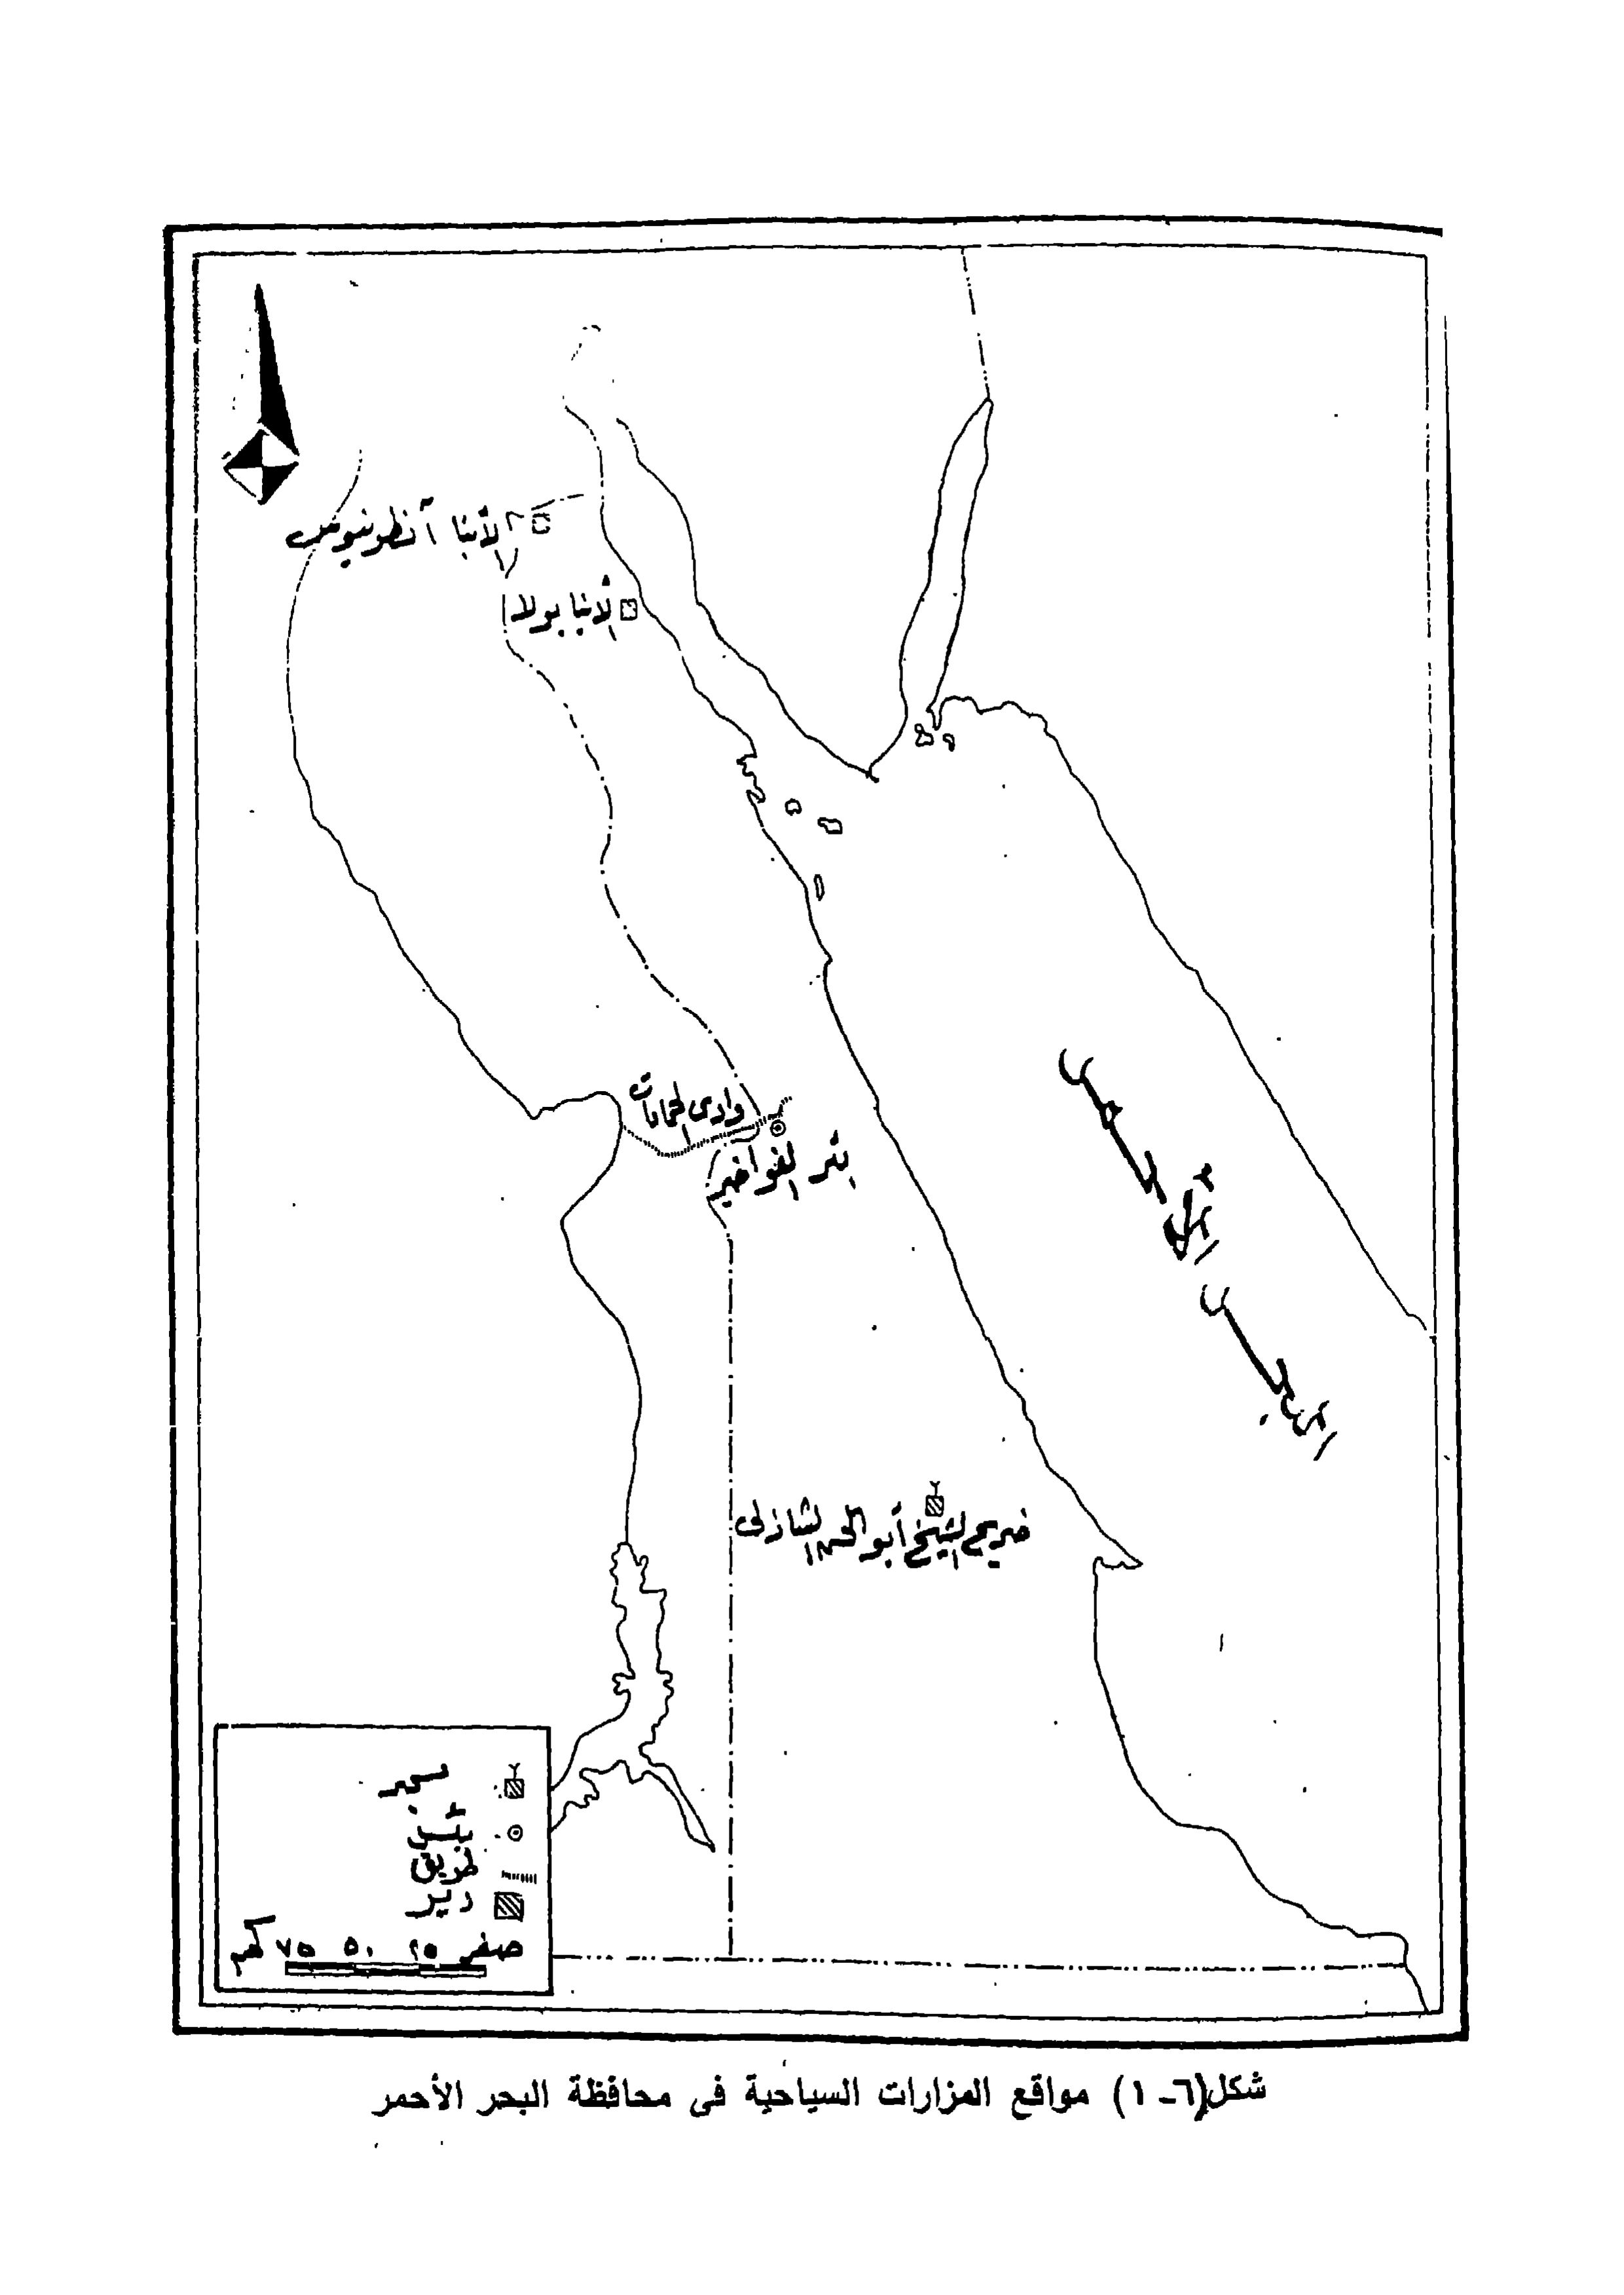 الأنبا أنطونيوس
الأنبا بولا
وادى الحمامات
بئر الفواخير
البحر الأحمر
ضريح الشيخ أبو الحسن الشاذلى
مسجد
بئر
طريق
دير
صفر ٢٥ ٥٠ ٧٥ كم
شكل(٦ـ ١) مواقع المزارات السياحية فى محافظة البحر الأحمر